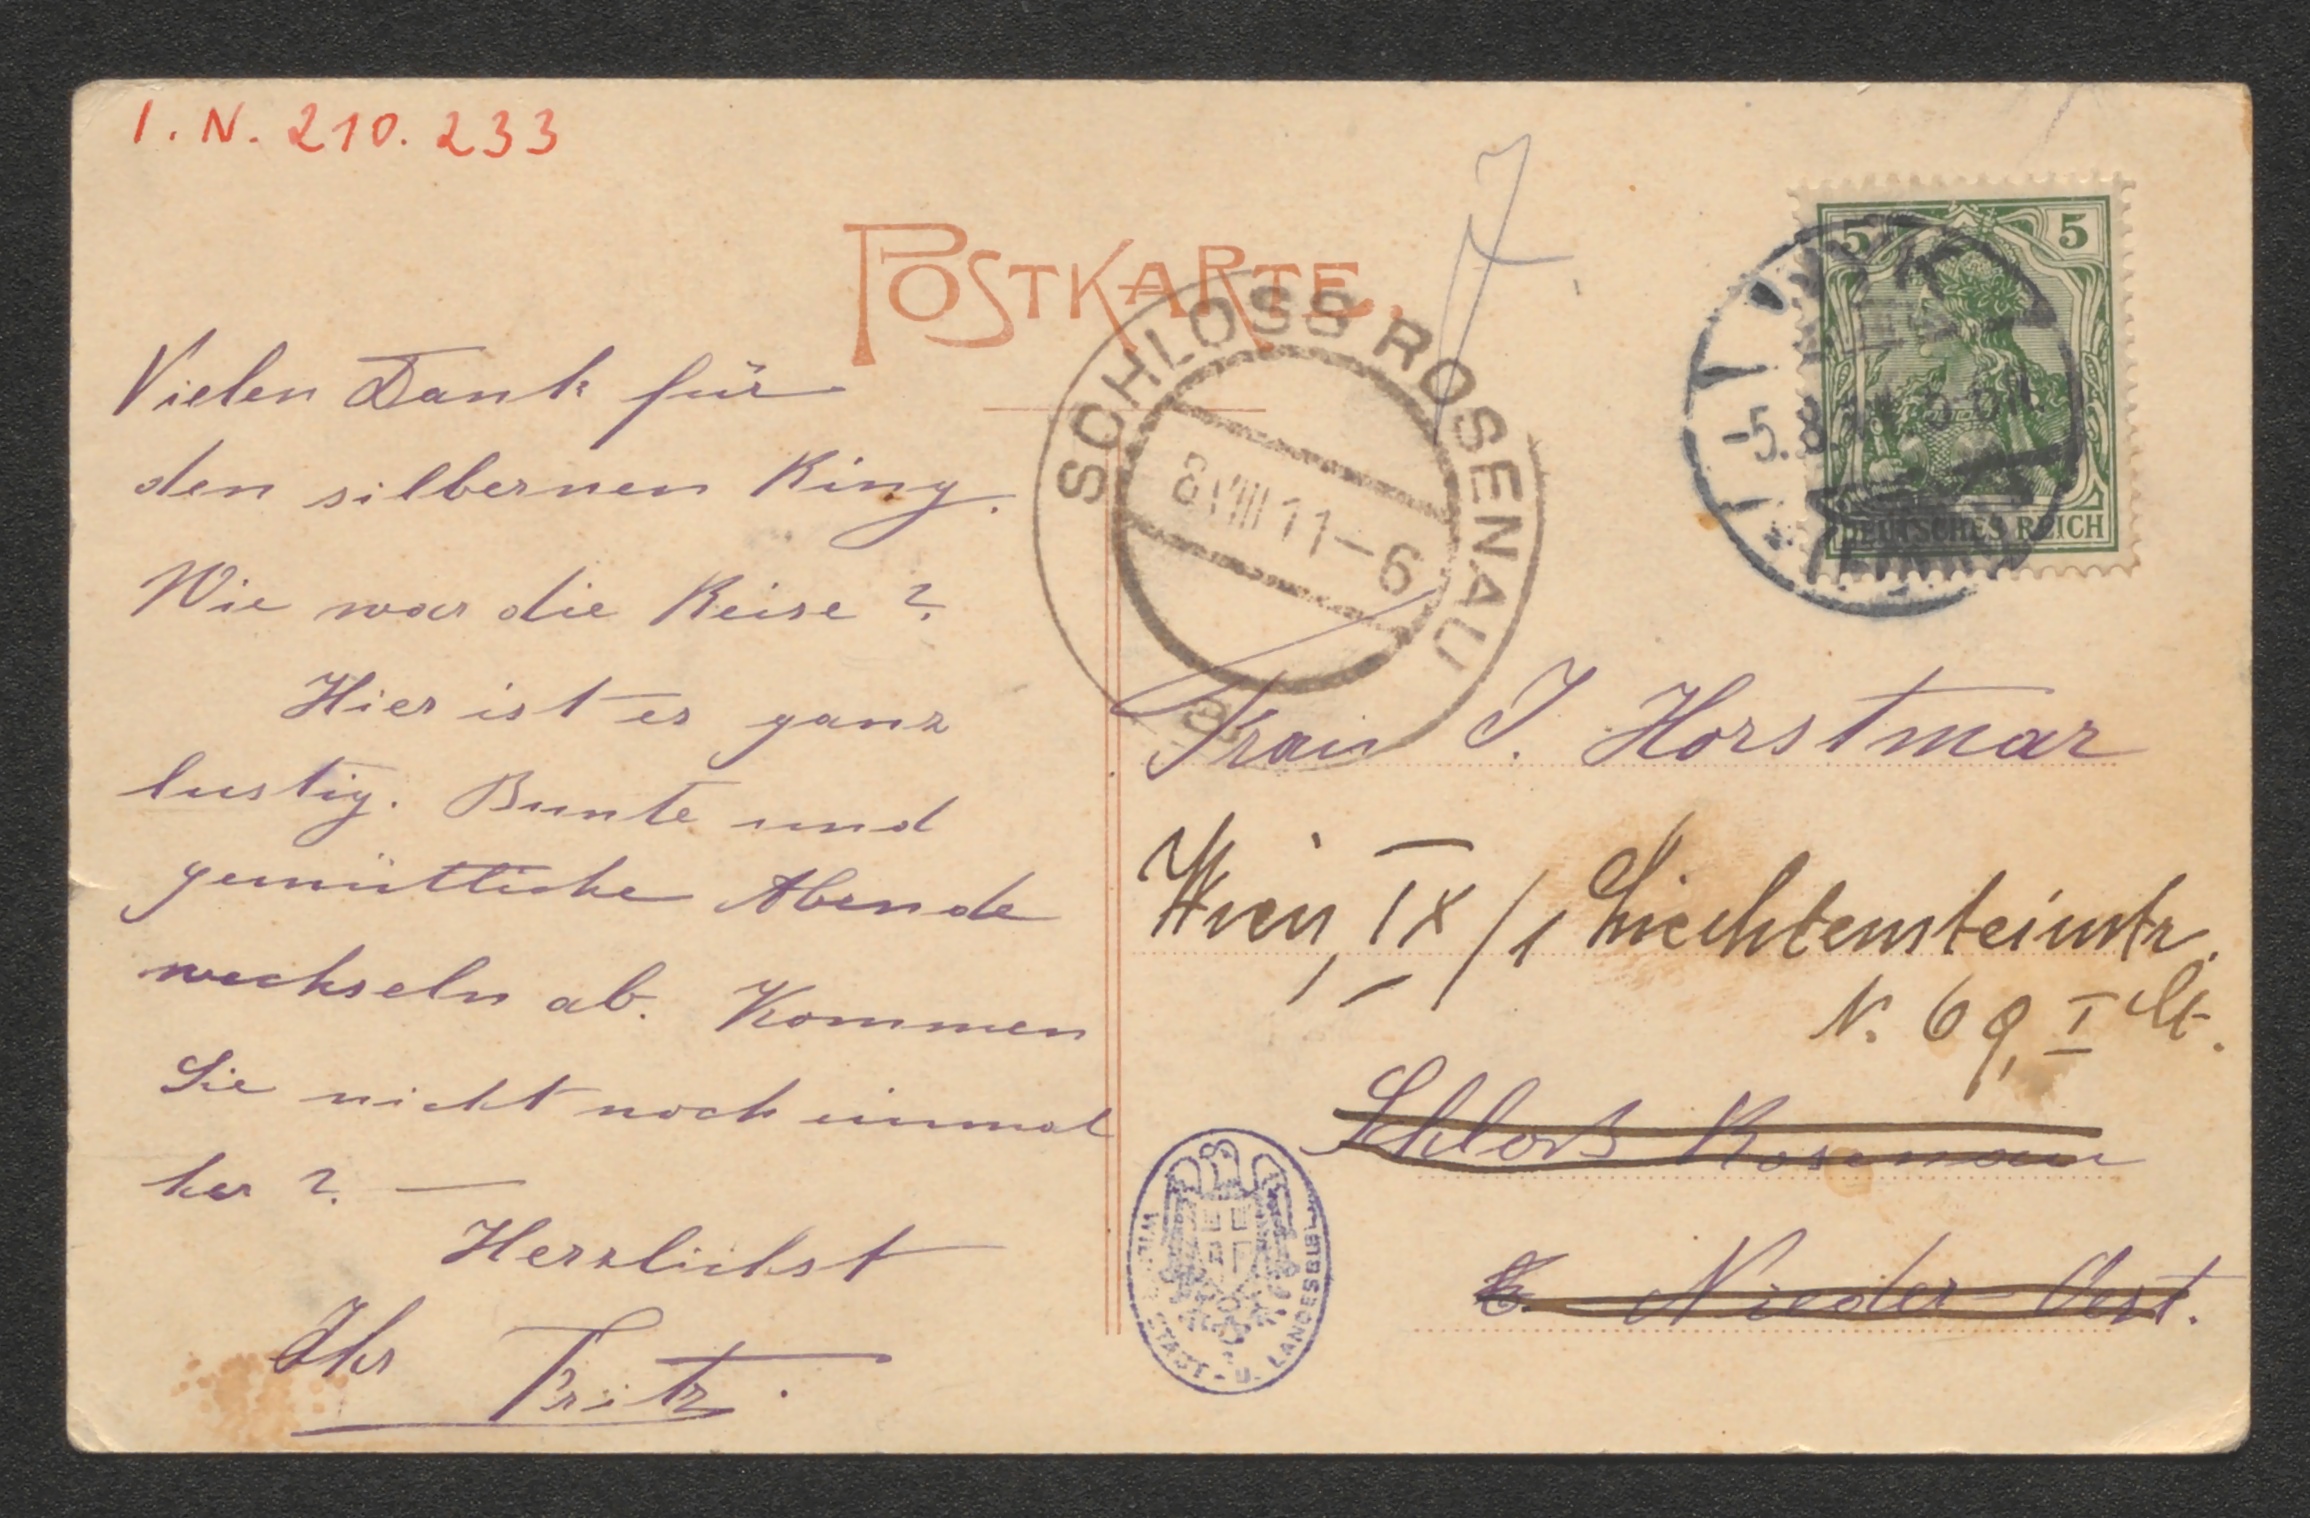 I. N. 210. 233
POSTKARTE.
Vielen Dank für
den silbernen Ring.
Wie war die Reise?
Hier ist es ganz
lustig. Bunte und
gemütliche Abende
wechseln ab. Kommen
Sie nicht noch einmal
her? —
Herzlichst
Ihr Fritz.
SCHLOSS ROSENAU
8 VIII 11-6
5 5
DEUTSCHES REICH
-5.8.11 5-6N
Frau J. Horstmar
Wien, IX/1 Liechtensteinstr.
N. 69, I St.
Schloß Rosenau
Nieder-Oest.
STADT- U. LANDESBIBL